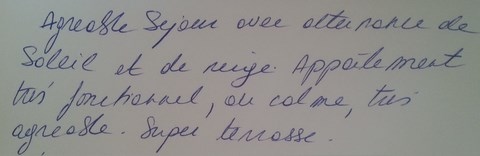 Agreable Sejour avec alternance de
Soleil et de neige. Appartement
très fonctionnel, au calme, très
agreable. Super terrasse.